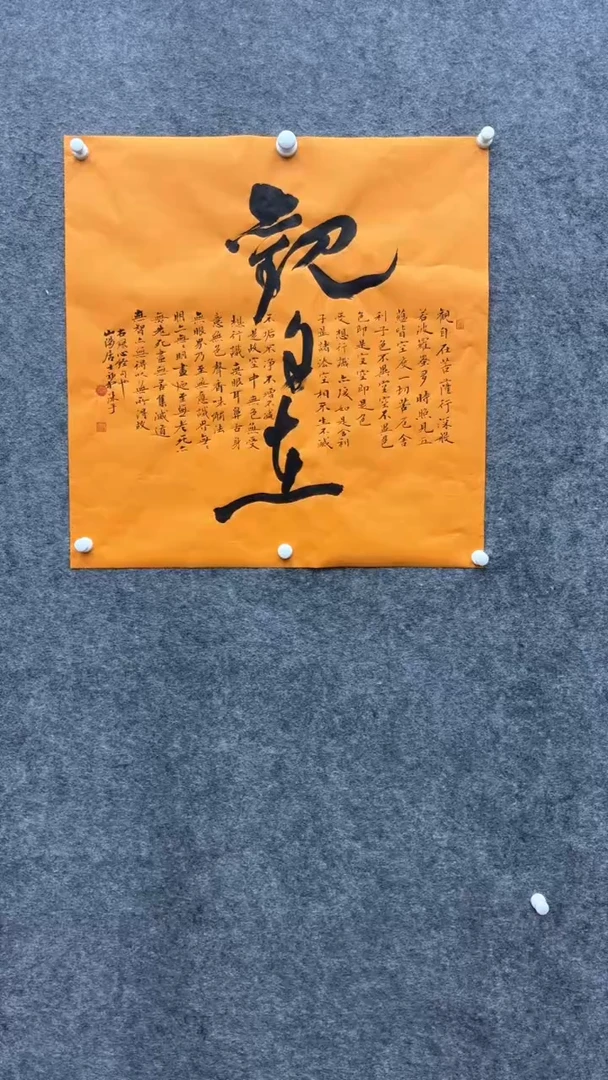 觀自在
觀自在菩薩行深般
若波羅蜜多時照見五
蘊皆空度一切苦厄舍
利子色不異空空不異色
色即是空空即是色
受想行識亦復如是舍利
子是諸法空相不生不滅
不垢不淨不增不減
是故空中無色無受
想行識無眼耳鼻舌身
意無色聲香味觸法
無眼界乃至無意識界無
明亦無明盡乃至無老死亦
無老死盡無苦集滅道
無智亦無得以無所得故
右録心经句
山陽居士